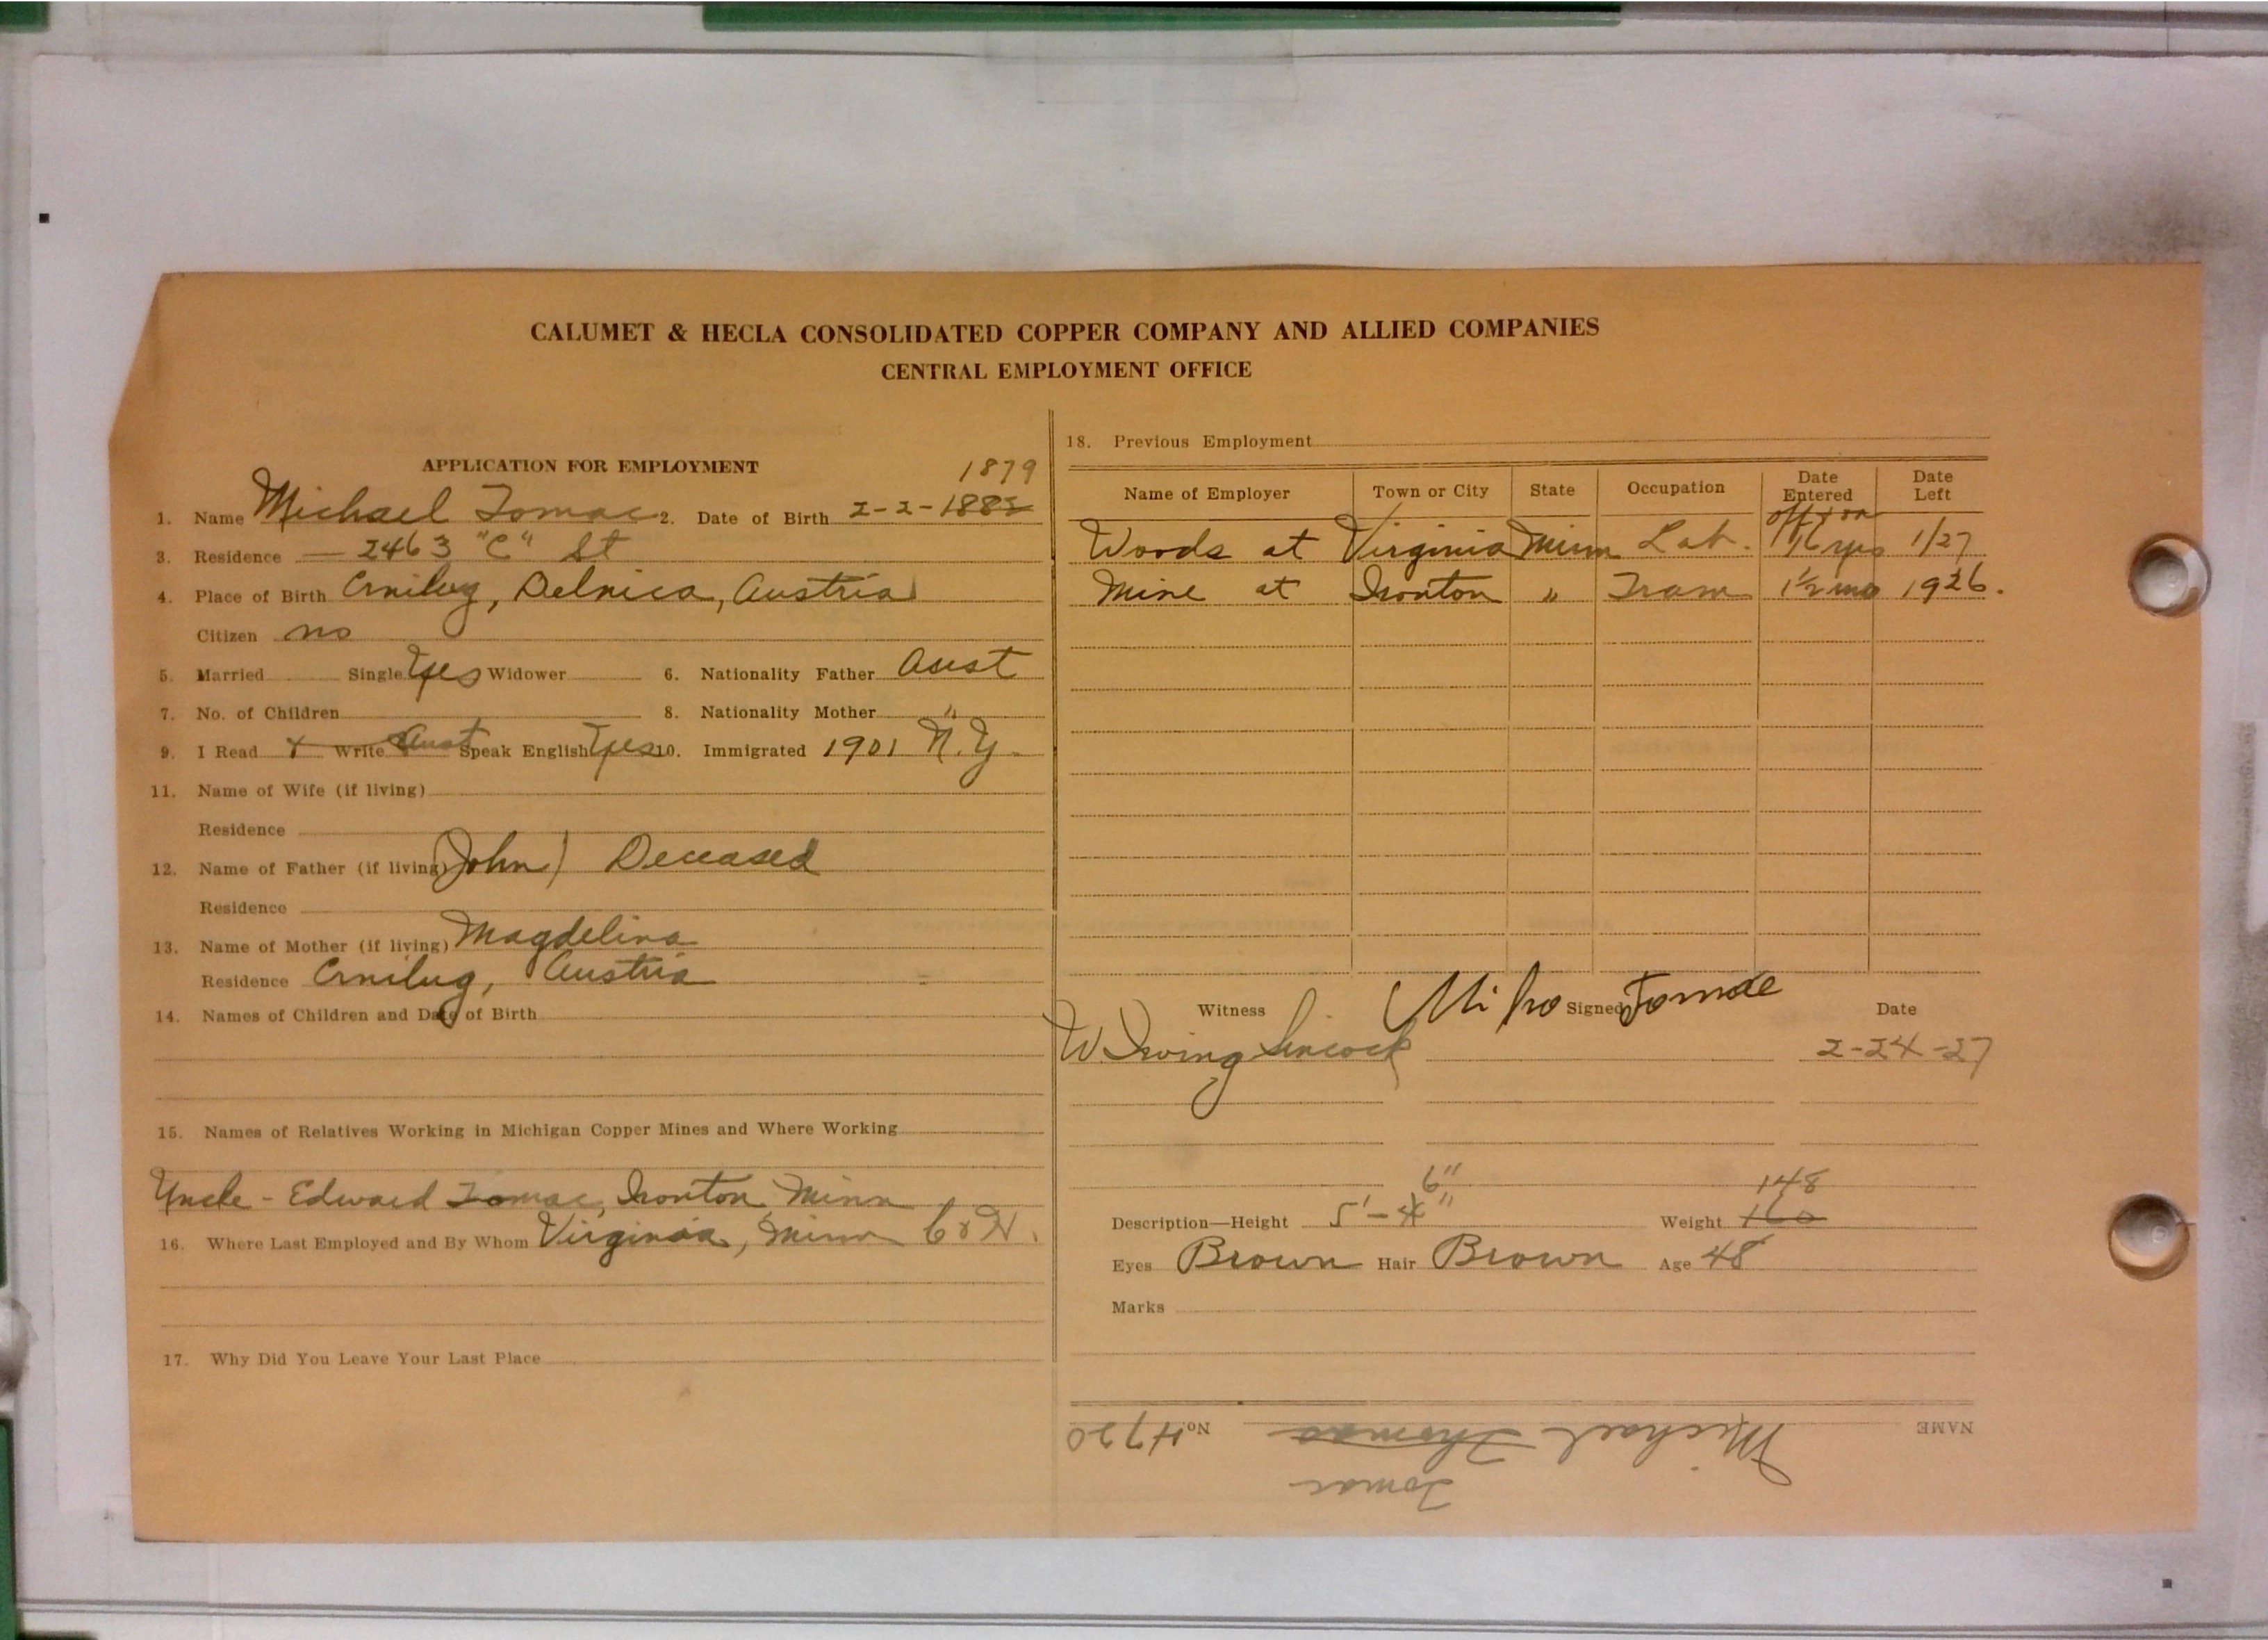 CALUMET & HECLA CONSOLIDATED COPPER COMPANY AND ALLIED COMPANIES
CENTRAL EMPLOYMENT OFFICE
APPLICATION FOR EMPLOYMENT 1879
1. Name Michael Tomac 2. Date of Birth 2-2-1882
3. Residence — 2463 "C" St
4. Place of Birth Crnilug, Delnica, Austria
Citizen no
5. Married Single Yes Widower 6. Nationality Father Aust
7. No. of Children 8. Nationality Mother "
9. I Read + Write Aust Speak English Yes 10. Immigrated 1901 N.Y.
11. Name of Wife (if living)
Residence
12. Name of Father (if living) (John) Deceased
Residence
13. Name of Mother (if living) Magdelina
Residence Crnilug, Austria
14. Names of Children and Date of Birth
15. Names of Relatives Working in Michigan Copper Mines and Where Working
Uncle - Edward Tomac, Ironton, Minn
16. Where Last Employed and By Whom Virginia, Minn C & H.
17. Why Did You Leave Your Last Place
18. Previous Employment
Name of Employer Town or City State Occupation Date Entered Date Left
off & on
Woods at Virginia Minn Lab. 16 yrs 1/27
Mine at Ironton " Tram 1½ mo 1926.
Witness Miho Signed Tomac Date
W Irving 2-24-27
6" 148
Description—Height 5'-4" Weight 160
Eyes Brown Hair Brown Age 48
Marks
NAME Michael Thomas No. 4720
Tomac